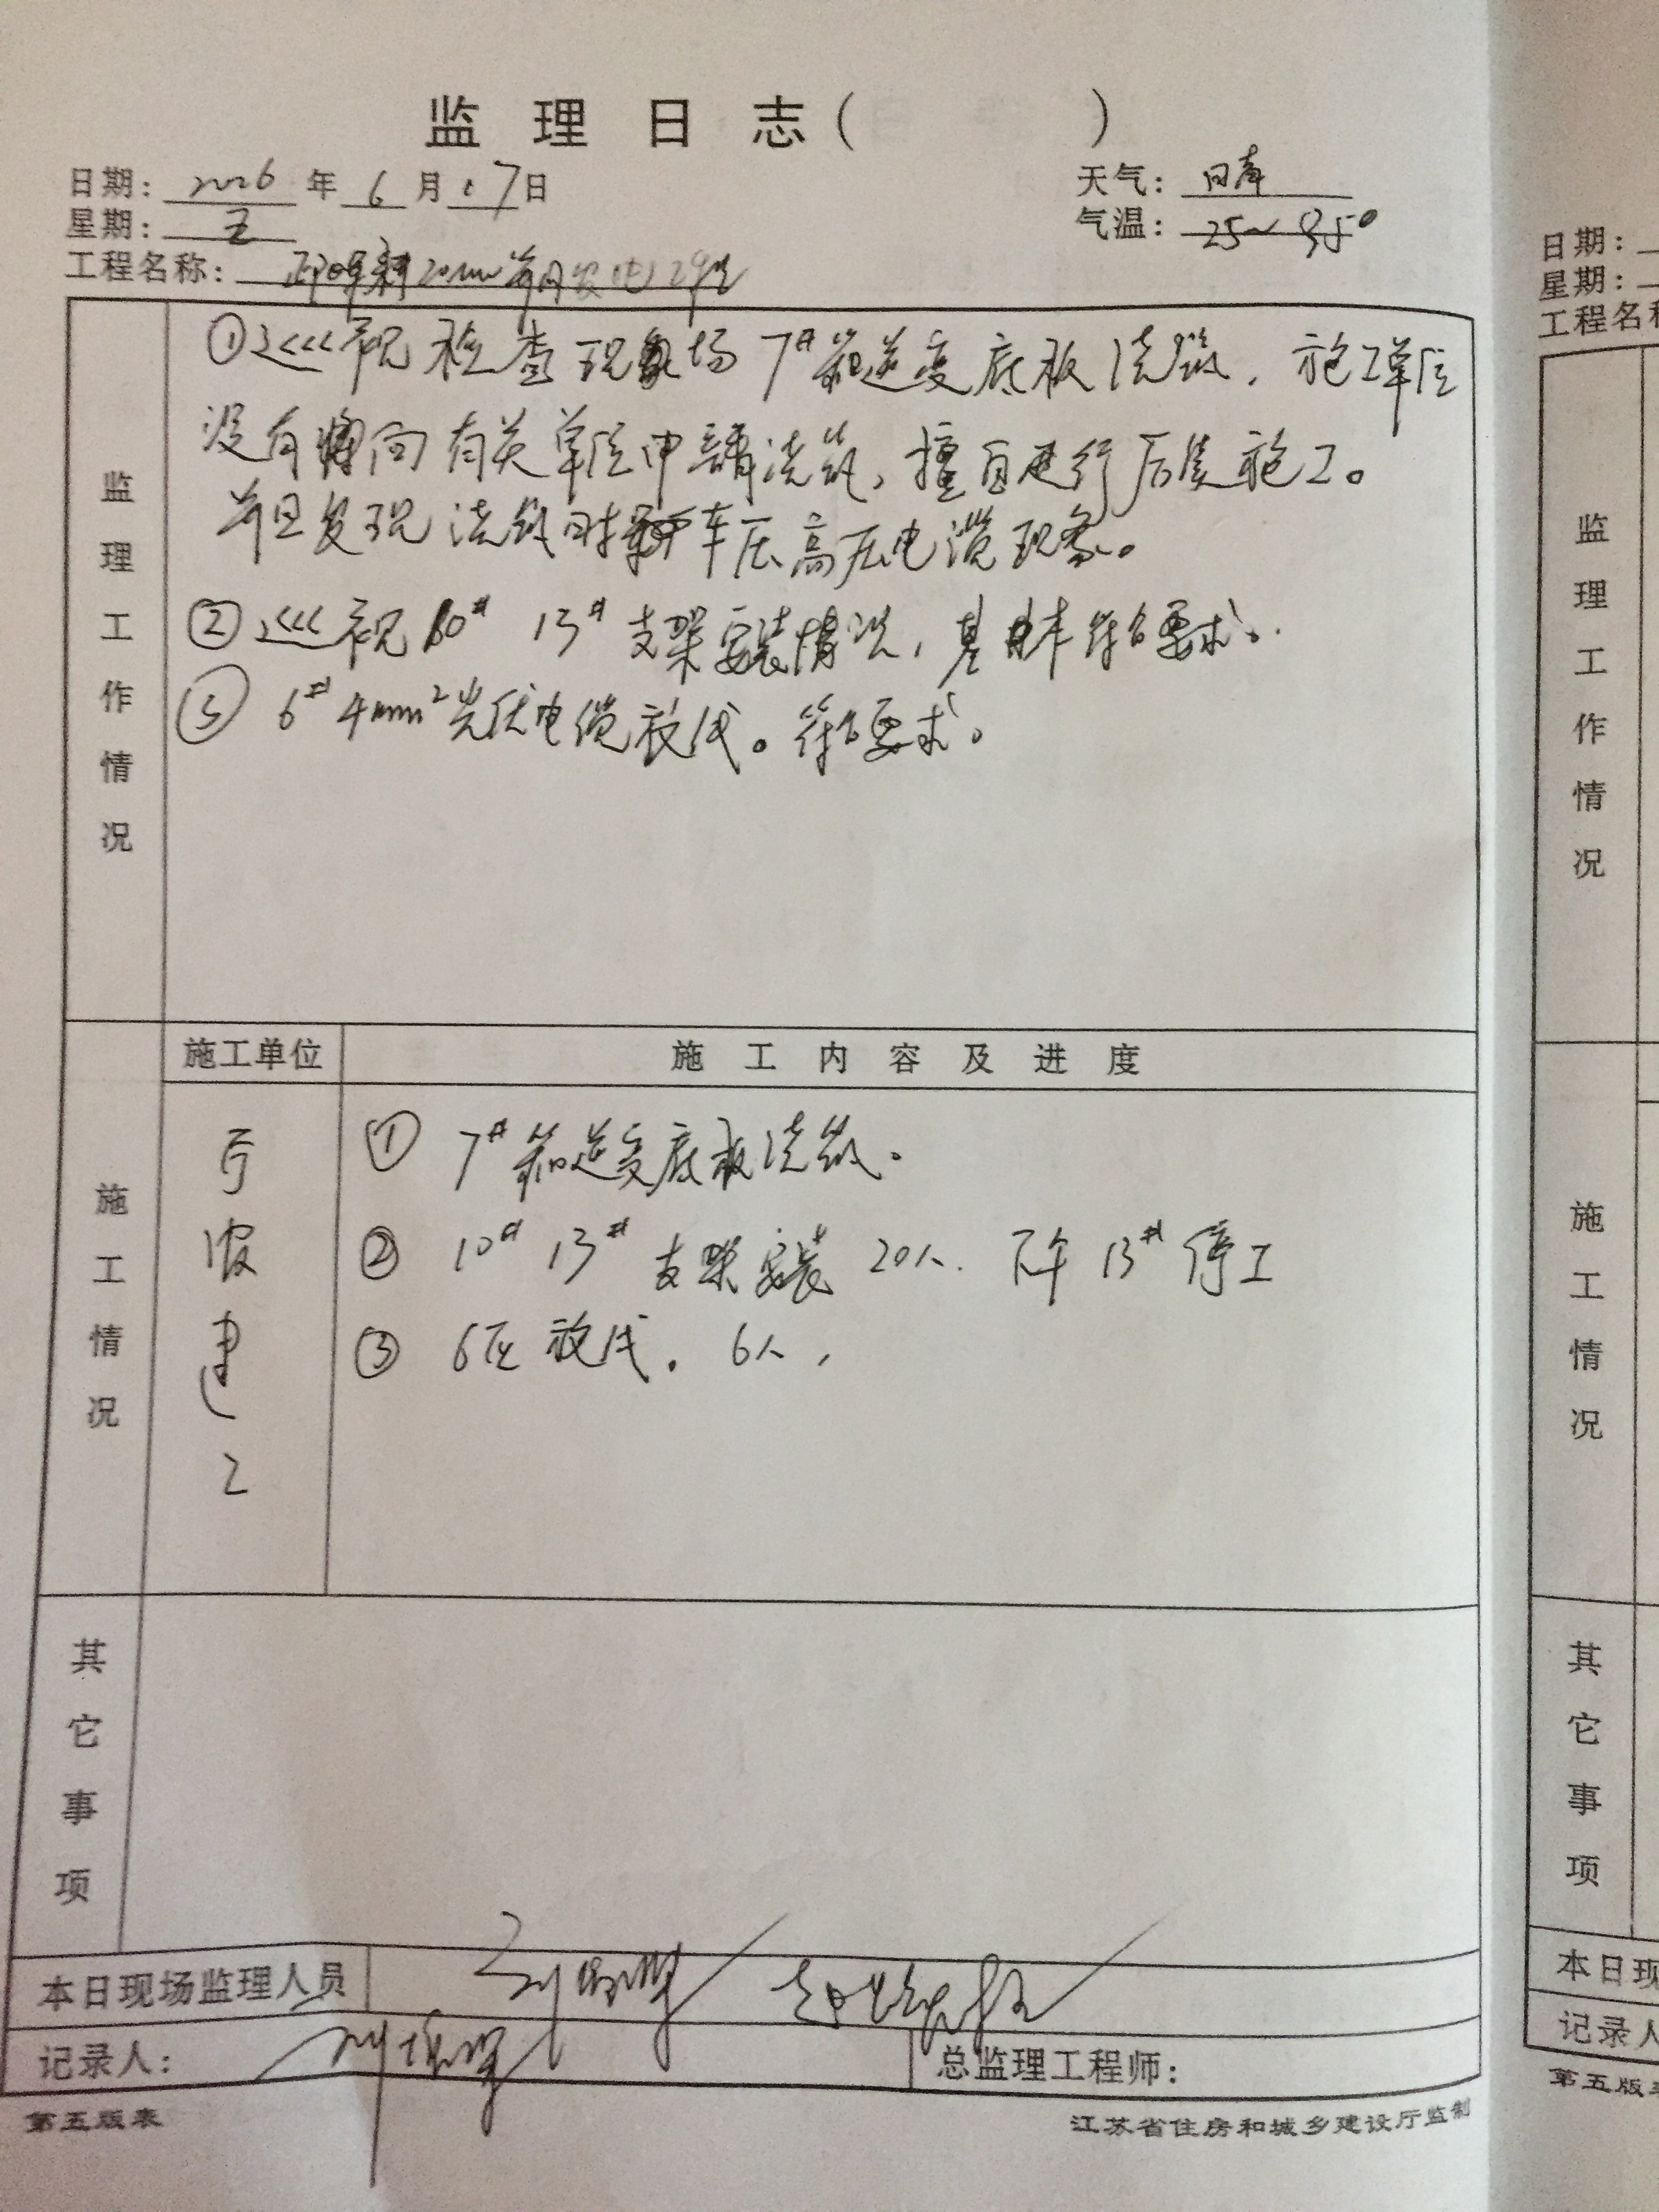 监理日志( )
日期: 2016 年 6 月 17 日
天气: 晴
星期: 五
气温: 25~35°
工程名称: 20MW 并网发电
监理工作情况
①巡视检查现场7#箱逆变底板浇筑,施工单位
没有向有关单位申请浇筑,擅自进行后续施工。
并且发现浇筑时 车压高压电缆现象。
②巡视10# 13#支架安装情况,基本符合要求。
③ 6# 4mm²光伏电缆放线。符合要求。
施工单位
施工内容及进度
施工情况
宁波建工
① 7#箱逆变底板浇筑。
② 10# 13# 支架安装 20人. 下午 13# 停工
③ 6区 放线. 6人,
其它事项
本日现场监理人员
记录人:
总监理工程师:
第五版表
江苏省住房和城乡建设厅监制
日期:
星期:
工程名称
监理工作情况
施工情况
其它事项
本日现
记录人
第五版表